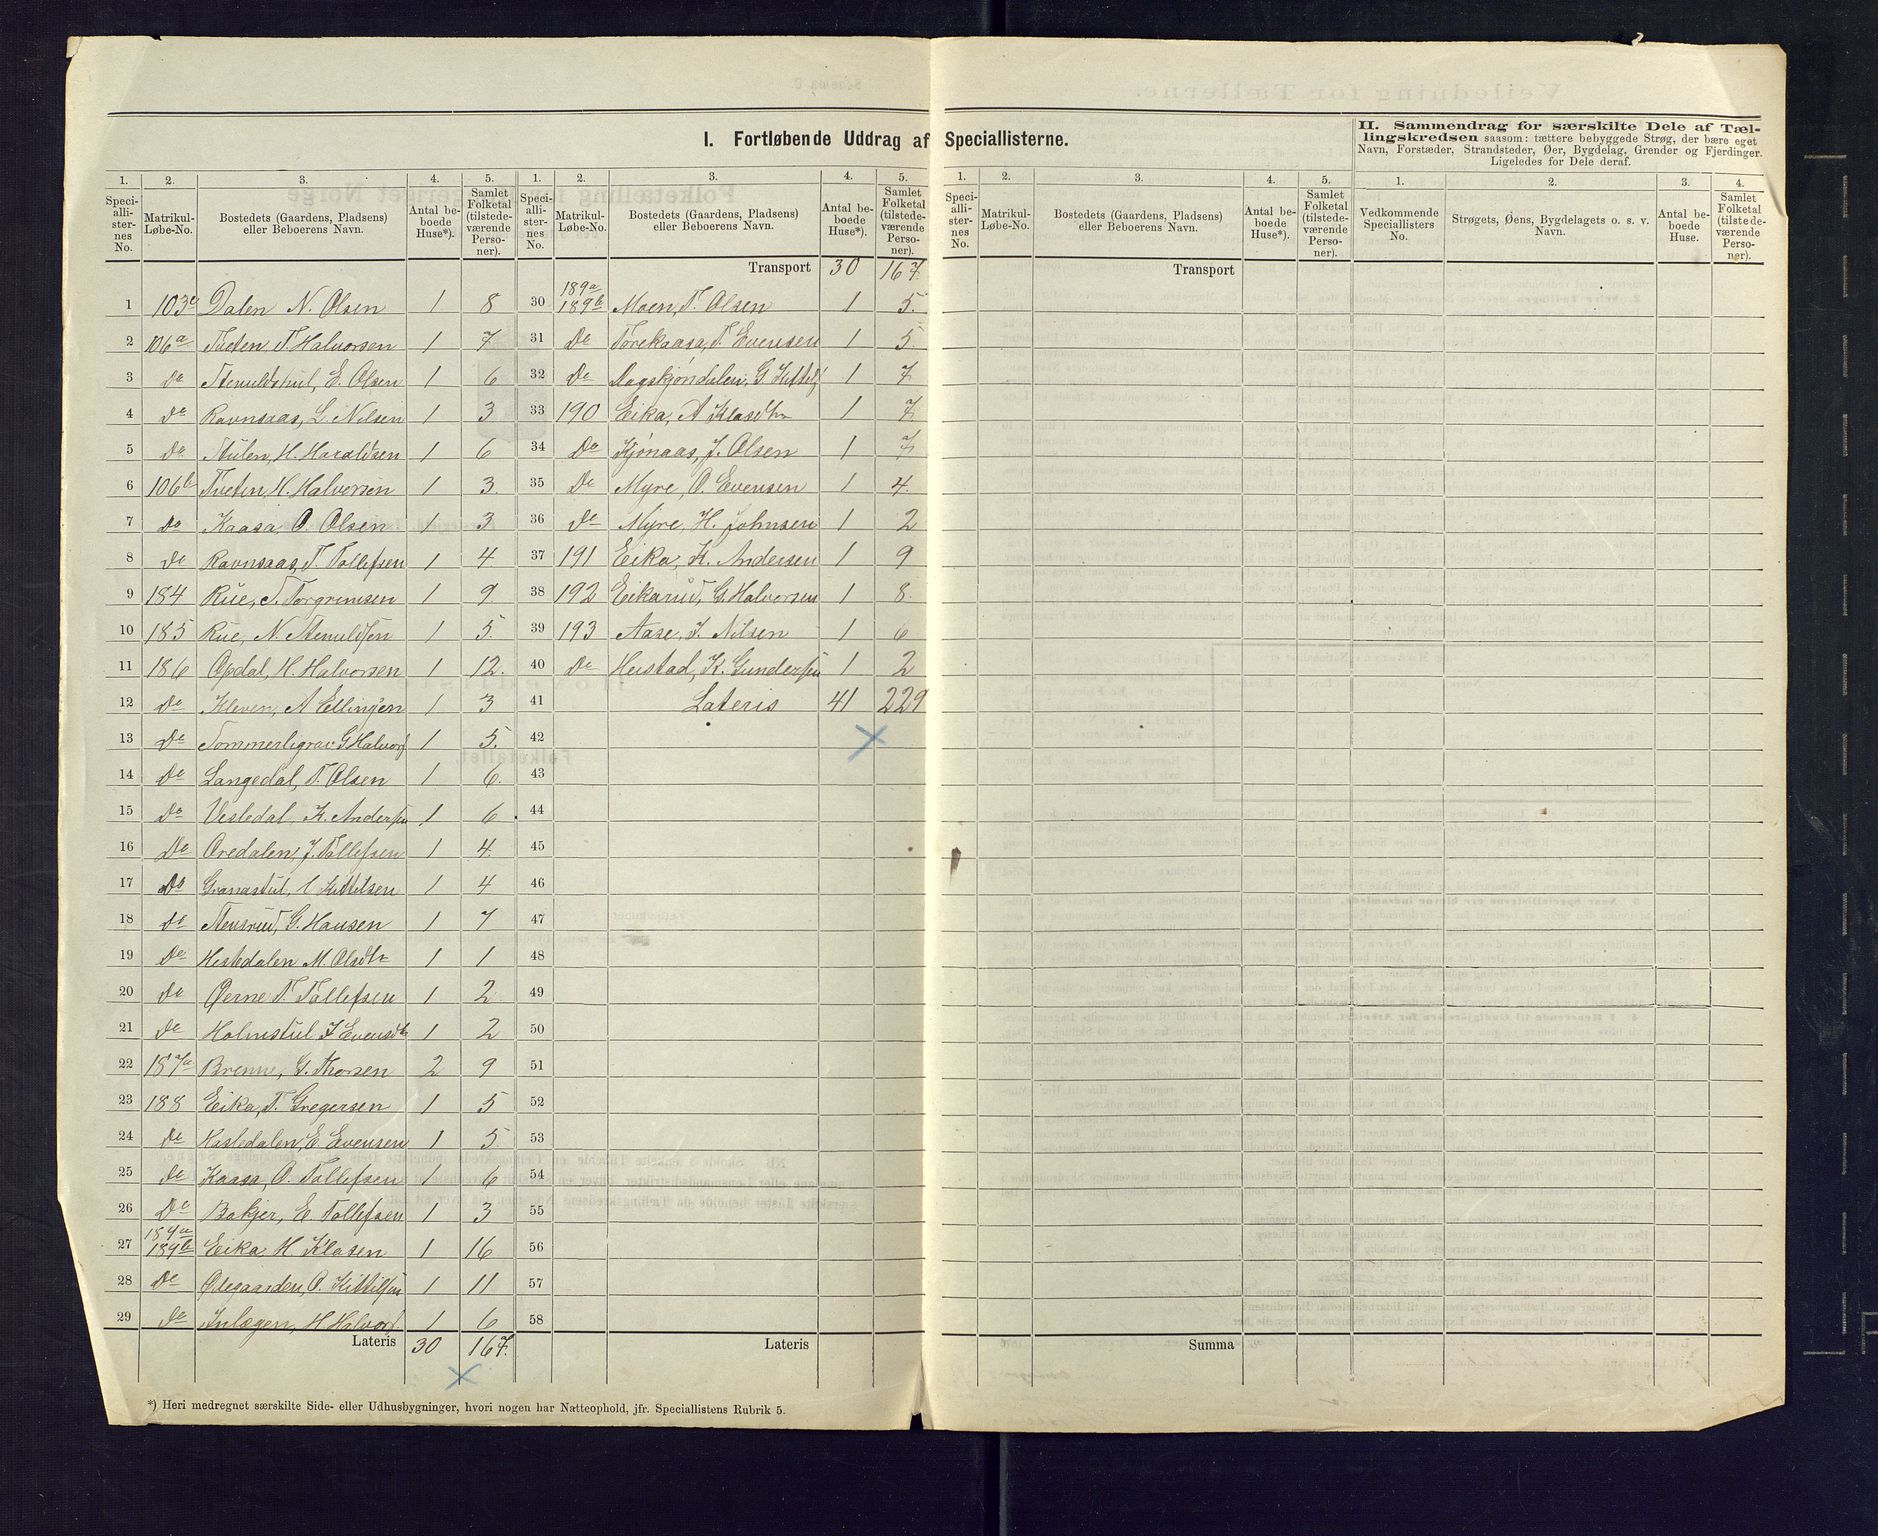 I. Fortløbende Uddrag af Speciallisterne.
II. Sammendrag for særskilte Dele af Tæl-
lingskredsen saasom: tættere bebyggede Strøg, der bære eget
Navn, Forstæder, Strandsteder, Øer, Bygdelag, Grender og Fjerdinger.
Ligeledes for Dele deraf.
1. 2. 3. 4. 5. 1. 2. 3. 4. 5. 1. 2. 3. 4. 5. 1. 2. 3. 4.
Speci-alli-ster-nes No. Matrikul-Løbe-No. Bostedets (Gaardens, Pladsens) eller Beboerens Navn. Antal be-boede Huse*). Samlet Folketal (tilstede-værende Perso-ner).
Speci-alli-ster-nes No. Matrikul-Løbe-No. Bostedets (Gaardens, Pladsens) eller Beboerens Navn. Antal be-boede Huse*). Samlet Folketal (tilstede-værende Perso-ner).
Speci-alli-ster-nes No. Matrikul-Løbe-No. Bostedets (Gaardens, Pladsens) eller Beboerens Navn. Antal be-boede Huse*). Samlet Folketal (tilstede-værende Perso-ner).
Vedkommende Speciallisters No. Strøgets, Øens, Bygdelagets o. s. v. Navn. Antal be-boede Huse. Samlet Folketal (tilstede-værende Perso-ner).
1 103a Dalen N. Olsen 1 8
2 106a Tveten T Halvorsen 1 7
3 do Stenuldstul, E. Olsen 1 6
4 do Ravnsaas, L. Nilsen 1 3
5 do Stulen, H. Haraldsen 1 6
6 106b Tveten, H. Halvorsen 1 3.
7 do Kaasa O. Olsen 1 3
8 do Ravnsaas, T. Tollefsen 1 4
9 184 Rue, T. Torgrimsen 1 9
10 185 Rue, N. Stenuldsen 1 5.
11 186 Opdal, H. Halvorsen 1 12.
12 Do Kleven, A Ellingsen 1 3
13 Do Tommerligrav G Halvors 1 5.
14 Do Langedal, T. Olsen 1 6.
15 Do Vesledal, K. Andersen 1 6
16 Do Oredalen, J. Tollefsen 1 4.
17 Do Granastul, Kittilsen 1 4
18 do Stensrud, G. Hansen 1 7
19 Do Hestedalen M. Olsdtr 1 1
20 do Øerne T. Tollefsen 1 2
21 do Holmstul I Evensdtr 1 2
22 187a Brenne, G. Thorsen 2 9
23 188 Eika, T. Gregersen 1 5
24 do Hasledalen, E. Evensen 1 5
25 do Kaasa, O. Tollefsen 1 6
26 Do Bakjer, E Tollefsen 1 3
27 189a 189b Eika H Klasen 1 16
28 Do Ødegaarden, O. Kittilsen 1 11
29 do Inlægen, H Halvors 1 6
Lateris 30 167.
Transport 30 167.
30 189a 189b Moen, T. Olsen 1 5.
31 Do Torekaasa, T. Evensen 1 5
32 Do Dagskjøndalen, G Kittils 1 7
33 190 Eika, A Klasdtr 1 7
34 Do Kjønaas, J. Olsen 1 7
35 Do Myre, O. Evensen 1 4.
36 do Myre, H. Johnsen 1 2
37 191 Eika, K. Andersen 1 9
38 192 Eikarud, G. Halvorsen 1 8.
39 193 Aase, J. Nilsen 1 6
40 Do Heistad, K. Gundersen 1 2
41 Lateris 41 229
42
43
44
45
46
47
48
49
50
51
52
53
54
55
56
57
58
Lateris
Transport
Summa
*) Heri medregnet særskilte Side- eller Udhusbygninger, hvori nogen har Natteophold, jfr. Speciallistens Rubrik 5.